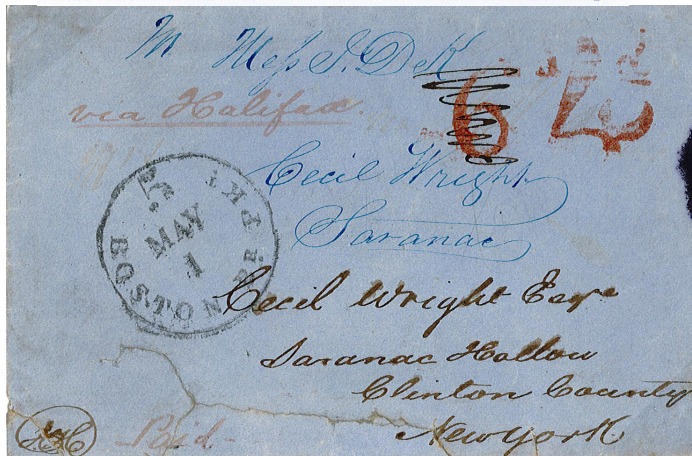 Mess J. D K
via Halifax.
6
Cecil Wright
Saranac
BOSTON BR. PKT
MAY
1
Cecil Wright Esqr
Saranac Hollow
Clinton County
New York
Paid